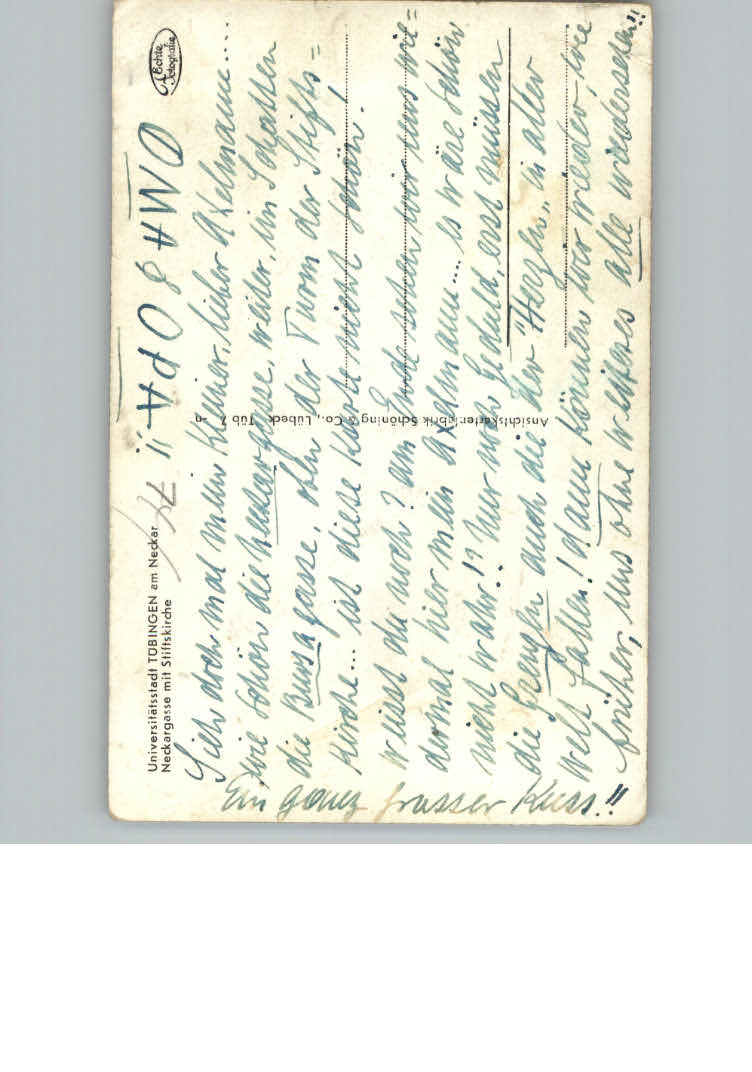 Universitätsstadt TÜBINGEN am Neckar
Neckargasse mit Stiftskirche
Echte Fotografie
OPA & OMA
Sieh doch mal mein Kleiner, lieber Axelmann....
wie schön die Neckargasse, weiter, im Schatten
die Bursagasse, oben der Turm der Stifts=
Kirche... ist diese Karte nicht schön!
weisst du noch? am Ende sehen wir uns wie=
dermal hier mein Axelmann.... es wäre schön
nicht wahr!? Nur noch Geduld, erst müssen
die Grenzen auch die der "Herzen" in aller
Welt fallen! dann können wir wieder, wie
früher, uns ohne weiteres alle wiedersehen!!
Ein ganz grosser Kuss!!
Ansichtskartenfabrik Schöning & Co., Lübeck Tüb 7 -n